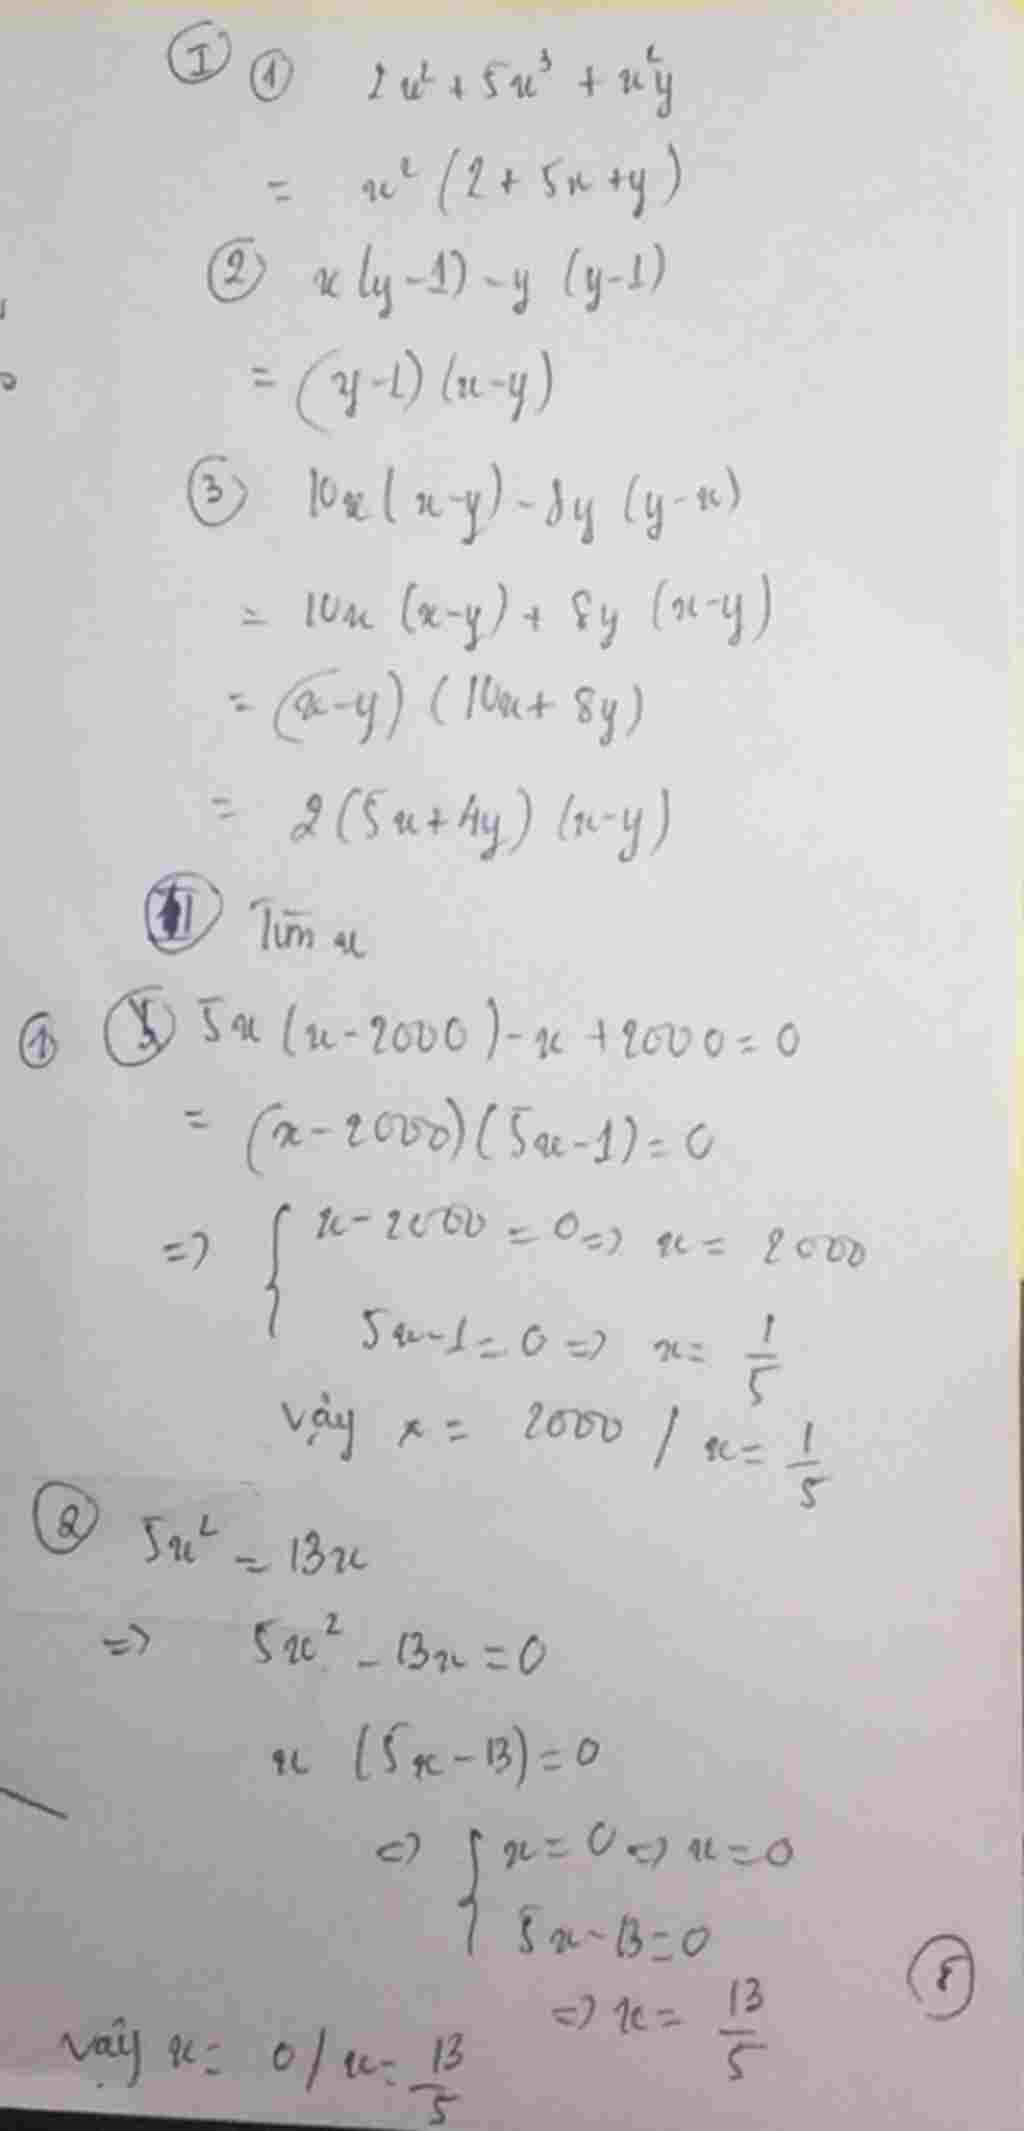 Ⓘ ① 2x² + 5x³ + x²y
= x² (2 + 5x + y)
② x(y-1) - y (y-1)
= (y-1) (x-y)
③ 10x(x-y) - 8y (y-x)
= 10x (x-y) + 8y (x-y)
= (x-y) (10x + 8y)
= 2(5x+4y) (x-y)
II Tìm x
① 5x (x-2000) - x + 2000 = 0
= (x-2000)(5x-1) = 0
=> { x - 2000 = 0 => x = 2000
5x-1 = 0 => x = 1/5
Vậy x = 2000 / x = 1/5
② 5x² = 13x
=> 5x² - 13x = 0
x (5x - 13) = 0
=> { x = 0 => x = 0
5x - 13 = 0
=> x = 13/5
Vậy x = 0 / x = 13/5